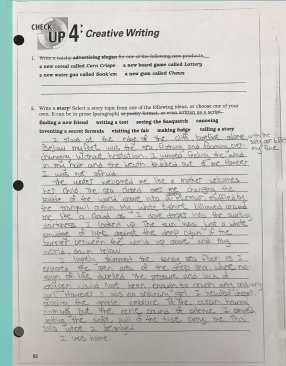 CHECK UP 4 Creative Writing
1. Write a catchy advertising slogan for one of the following new products.
a new cereal called Corn Crisps a new board game called Lottery
a new water gun called Soak'em a new gum called Chews
2. Write a story! Select a story topic from one of the following ideas, or choose one of your
own. It can be in prose (paragraph) or poetry form, or even written as a script.
finding a new friend writing a test seeing the Sasquatch canoeing
inventing a secret formula visiting the fair making fudge telling a story
I stood at the edge of the cliff before alone with the
Below my feet was the sea, frothing and foaming, ever
changing. Without hesitation, I jumped feeling the wind
in my hair and the breath knocked out of me. However
I was not afraid.
The water welcomed me like a mother welcomes
her child. The sea closed over me, changing the
noise of the world above into silence muffled by
the tranquil ocean. My white t-shirt billowed around
me like a cloud as I dove deeper into the swirling
darkness. I looked up. The sun was just a white
smudge of light around the deep
barrier between the world up above and my
world down below.
I lightly skimmed the sandy sea floor as I
explored the open area of the deep sea, where no
sign of life dwelled. The pressure and lack of
oxygen could have been enough to crush any ordinary
girl. However I was no ordinary girl. I
the gentle embrace of the ocean hearing
nothing but the eerie sound of silence. I
letting the soft pull of the tide carry me. This
was where I belonged.
I was home.
62